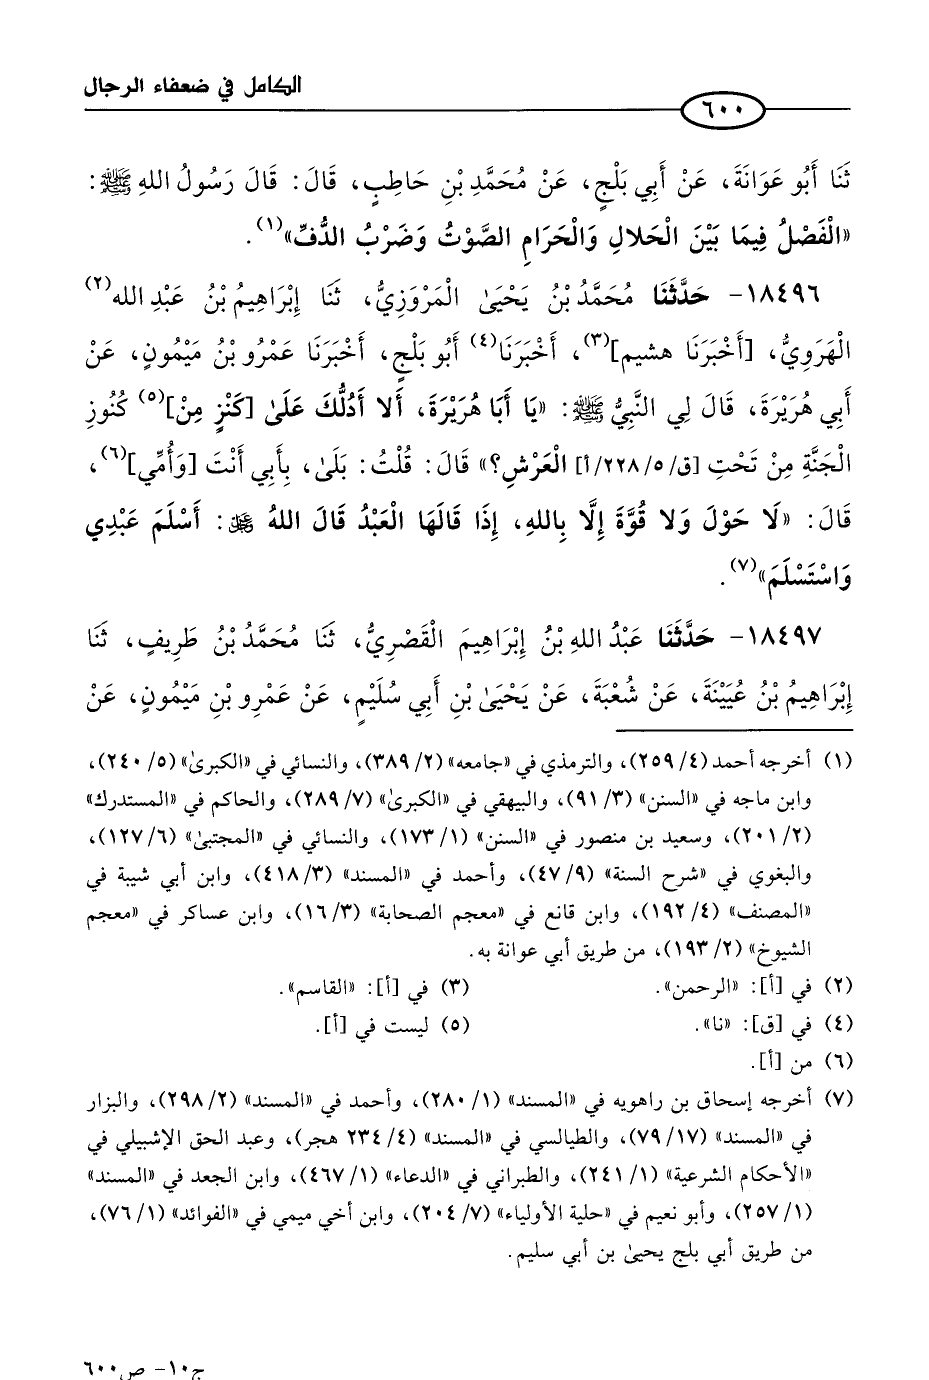 الكامل في ضعفاء الرجال
٦٠٠
ثَنَا أَبُو عَوَانَةَ، عَنْ أَبِي بَلْجٍ، عَنْ مُحَمَّدِ بْنِ حَاطِبٍ، قَالَ: قَالَ رَسُولُ اللهِ ﷺ:
«الْفَصْلُ فِيمَا بَيْنَ الْحَلالِ وَالْحَرَامِ الصَّوْتُ وَضَرْبُ الدُّفِّ»(١).
١٨٤٩٦- حَدَّثَنَا مُحَمَّدُ بْنُ يَحْيَىٰ الْمَرْوَزِيُّ، ثَنَا إِبْرَاهِيمُ بْنُ عَبْدِ الله(٢)
الْهَرَوِيُّ، [أَخْبَرَنَا هشيم](٣)، أَخْبَرَنَا(٤) أَبُو بَلْجٍ، أَخْبَرَنَا عَمْرُو بْنُ مَيْمُونٍ، عَنْ
أَبِي هُرَيْرَةَ، قَالَ لِي النَّبِيُّ ﷺ: «يَا أَبَا هُرَيْرَةَ، أَلا أَدُلُّكَ عَلَىٰ [كَنْزٍ مِنْ](٥) كُنُوزِ
الْجَنَّةِ مِنْ تَحْتِ [ق/٥/٢٢٨/أ] الْعَرْشِ؟» قَالَ: قُلْتُ: بَلَىٰ، بِأَبِي أَنْتَ [وَأُمِّي](٦)،
قَالَ: «لَا حَوْلَ وَلا قُوَّةَ إِلَّا بِاللهِ، إِذَا قَالَهَا الْعَبْدُ قَالَ اللهُ ﷻ: أَسْلَمَ عَبْدِي
وَاسْتَسْلَمَ»(٧).
١٨٤٩٧- حَدَّثَنَا عَبْدُ اللهِ بْنُ إِبْرَاهِيمَ الْقَصْرِيُّ، ثَنَا مُحَمَّدُ بْنُ طَرِيفٍ، ثَنَا
إِبْرَاهِيمُ بْنُ عُيَيْنَةَ، عَنْ شُعْبَةَ، عَنْ يَحْيَىٰ بْنِ أَبِي سُلَيْمٍ، عَنْ عَمْرِو بْنِ مَيْمُونٍ، عَنْ
(١) أخرجه أحمد (٤/ ٢٥٩)، والترمذي في «جامعه» (٢/ ٣٨٩)، والنسائي في «الكبرىٰ» (٥/ ٢٤٠)،
وابن ماجه في «السنن» (٣/ ٩١)، والبيهقي في «الكبرىٰ» (٧/ ٢٨٩)، والحاكم في «المستدرك»
(٢/ ٢٠١)، وسعيد بن منصور في «السنن» (١/ ١٧٣)، والنسائي في «المجتبىٰ» (٦/ ١٢٧)،
والبغوي في «شرح السنة» (٩/ ٤٧)، وأحمد في «المسند» (٣/ ٤١٨)، وابن أبي شيبة في
«المصنف» (٤/ ١٩٢)، وابن قانع في «معجم الصحابة» (٣/ ١٦)، وابن عساكر في «معجم
الشيوخ» (٢/ ١٩٣)، من طريق أبي عوانة به.
(٢) في [أ]: «الرحمن». (٣) في [أ]: «القاسم».
(٤) في [ق]: «نا». (٥) ليست في [أ].
(٦) من [أ].
(٧) أخرجه إسحاق بن راهويه في «المسند» (١/ ٢٨٠)، وأحمد في «المسند» (٢/ ٢٩٨)، والبزار
في «المسند» (١٧/ ٧٩)، والطيالسي في «المسند» (٤/ ٢٣٤ هجر)، وعبد الحق الإشبيلي في
«الأحكام الشرعية» (١/ ٢٤١)، والطبراني في «الدعاء» (١/ ٤٦٧)، وابن الجعد في «المسند»
(١/ ٢٥٧)، وأبو نعيم في «حلية الأولياء» (٧/ ٢٠٤)، وابن أخي ميمي في «الفوائد» (١/ ٧٦)،
من طريق أبي بلج يحيىٰ بن أبي سليم.
ج١٠- ص٦٠٠